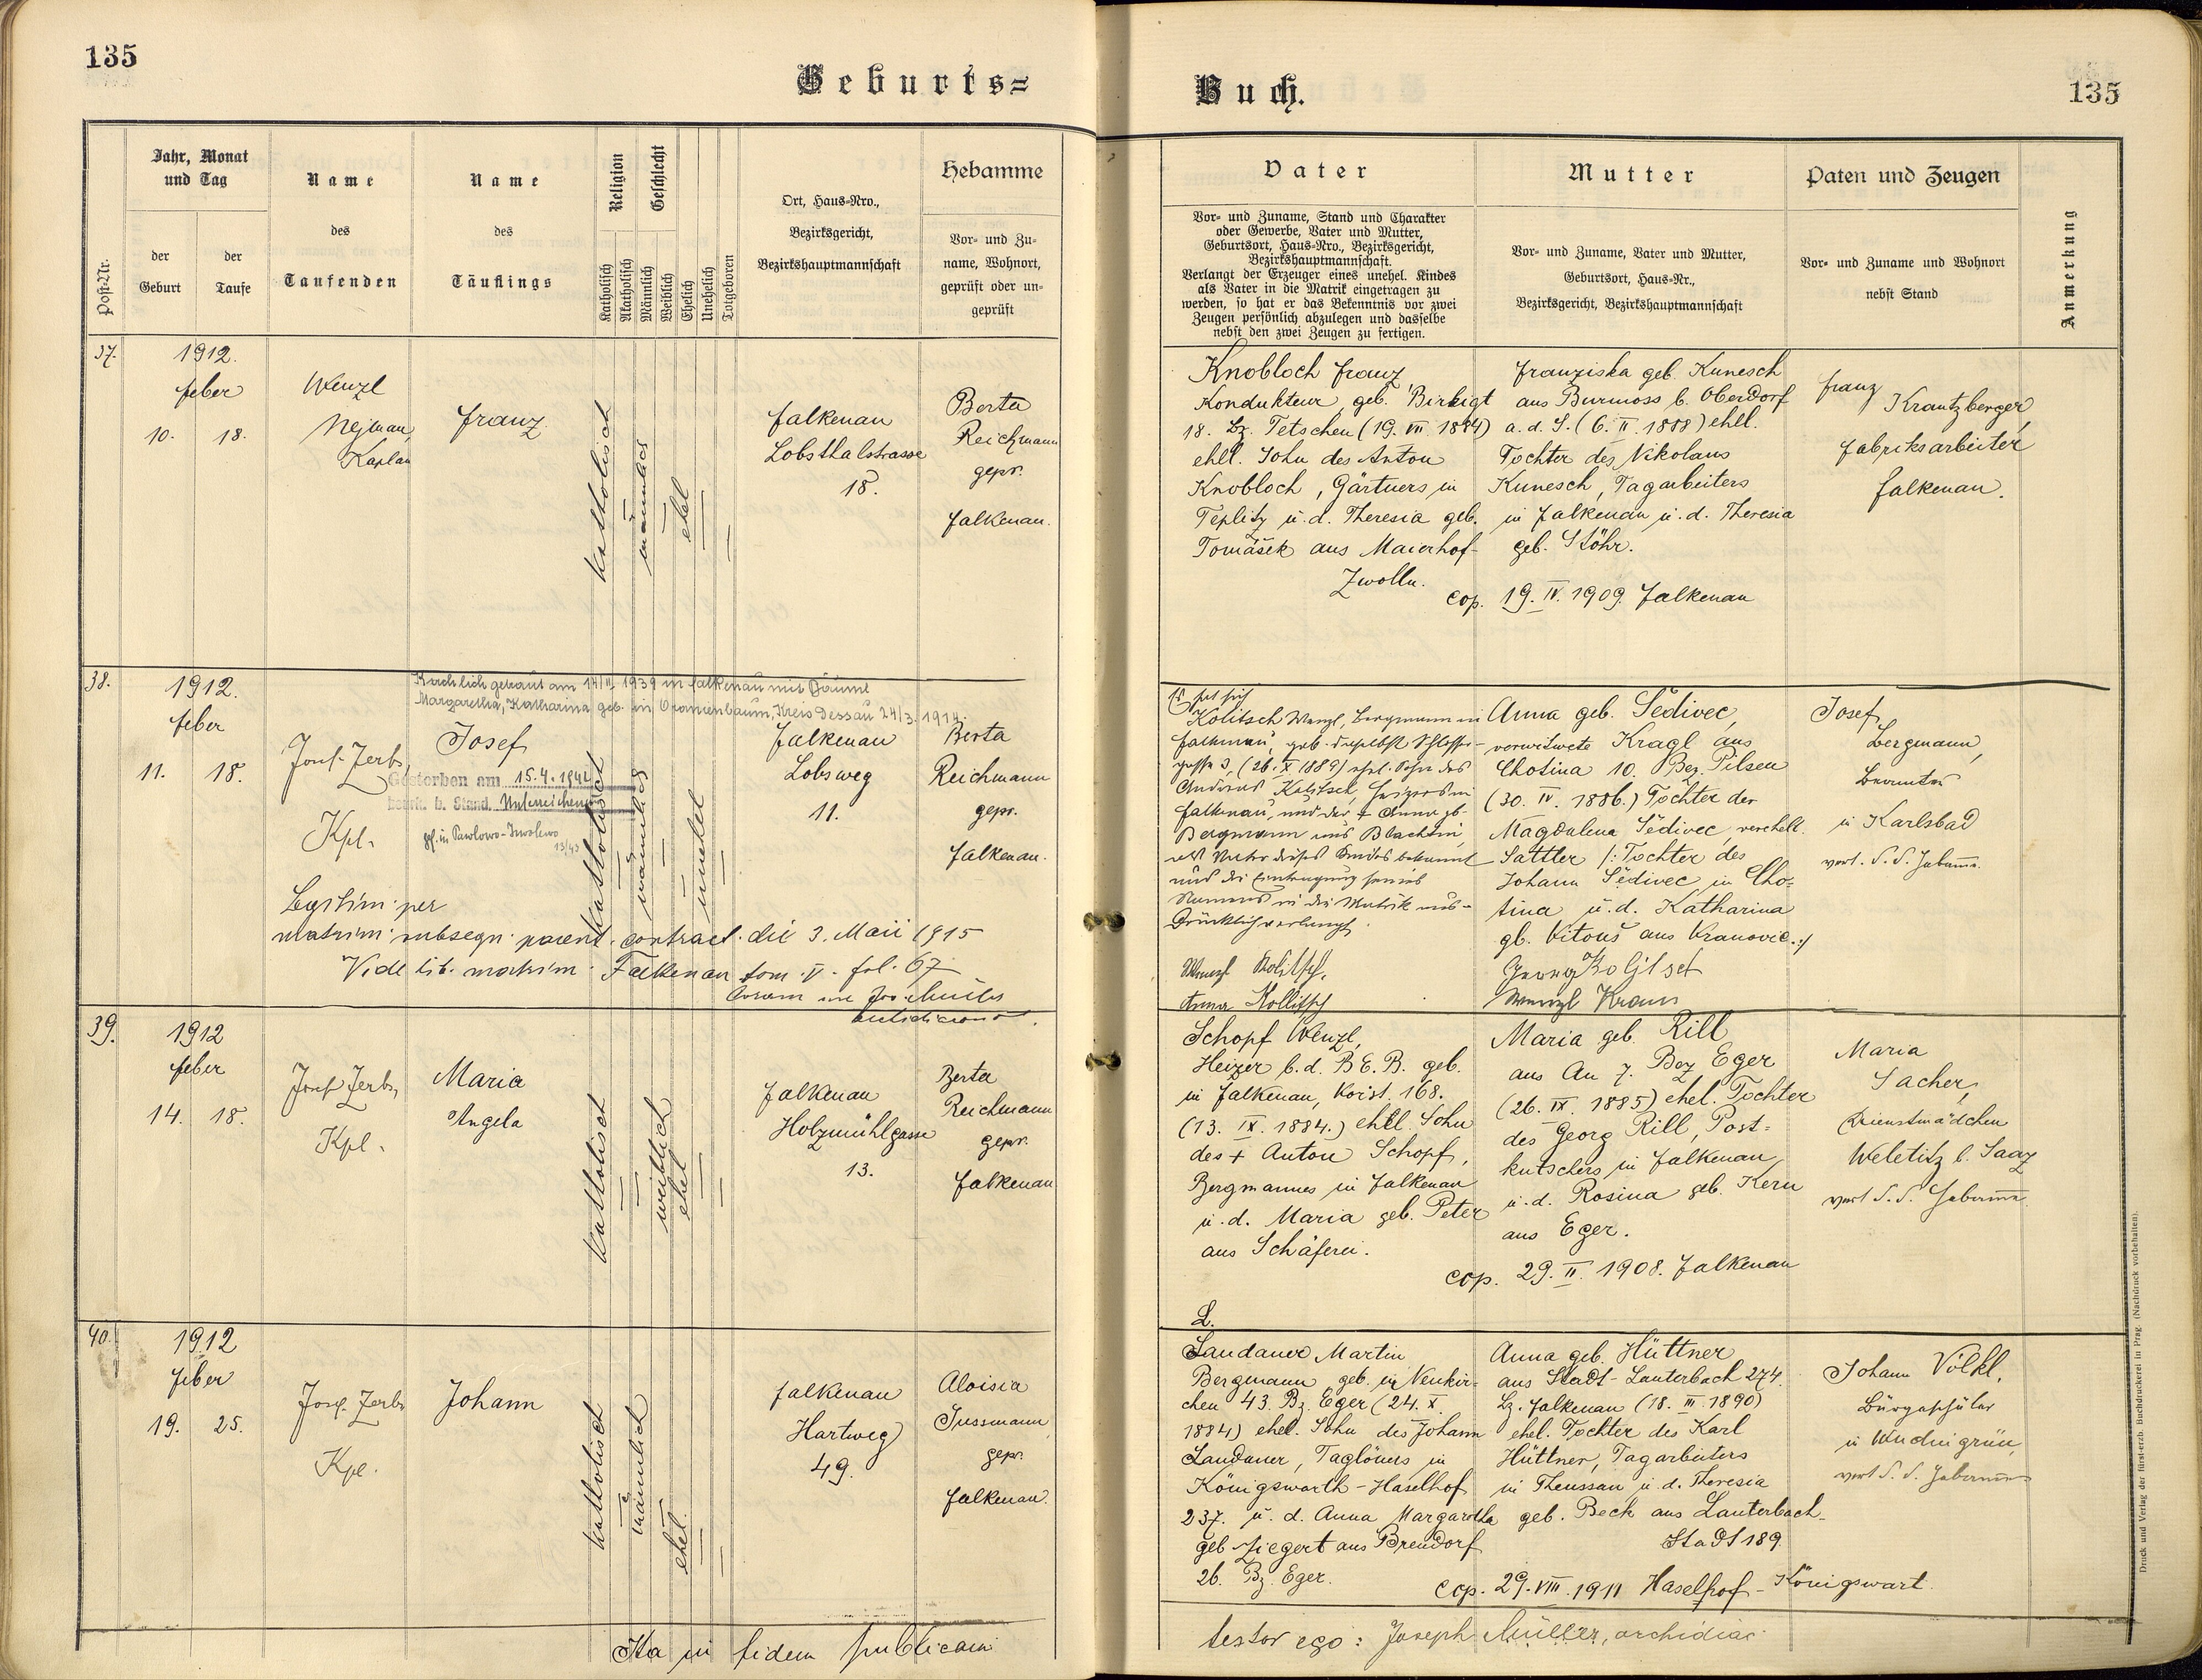 135
Geburts=
Jahr, Monat
und Tag
der
Geburt
der
Taufe
Post-Nr.
Name
des
Taufenden
Name
des
Täuflings
Religion
Geschlecht
Katholisch
Akatholisch
Männlich
Weiblich
Ehelich
Unehelich
Totgeboren
Ort, Haus-Nro.,
Bezirksgericht,
Bezirkshauptmannschaft
Hebamme
Vor- und Zu-
name, Wohnort,
geprüft oder un-
geprüft
37.
1912.
feber
10. 18.
Wenzl
Nejman,
Kaplan
Franz
katholisch
männlich
ehel
Falkenau
Lobsthalstrasse
18.
Berta
Reichmann
gepr.
Falkenau.
38.
1912.
feber
11. 18.
Kirchlich getraut am 14/II 1939 in Falkenau mit Bäuml
Margaretha, Katharina geb. in Oranienbaum, Kreis Dessau 24/3. 1914.
Josef Zerbs,
Kpl.
Josef
Gestorben am 15.4.1942
beurk. b. Stand. Unterreichenau
katholisch
männlich
unehel
Falkenau
Lobsweg
11.
Berta
Reichmann
gepr.
Falkenau.
Legitim. per
matrim. subsequ. parent. contract. die 3. Maii 1915
Vide lib. matrim. Falkenau tom. V. fol. 67
39.
1912
feber
14. 18.
Josef Zerbs,
Kpl.
Maria
Angela
katholisch
weiblich
ehel
Falkenau
Holzmühlgasse
13.
Berta
Reichmann
gepr.
Falkenau
40.
1912
feber
19. 25.
Josef Zerbs
Kpl.
Johann
katholisch
männlich
ehel.
Falkenau
Hartweg
49.
Aloisia
Sussmann
gepr.
Falkenau.
Ita in fidem publicam
Buch.
135
Vater
Vor- und Zuname, Stand und Charakter
oder Gewerbe, Vater und Mutter,
Geburtsort, Haus-Nro., Bezirksgericht,
Bezirkshauptmannschaft.
Verlangt der Erzeuger eines unehel. Kindes
als Vater in die Matrik eingetragen zu
werden, so hat er das Bekenntnis vor zwei
Zeugen persönlich abzulegen und dasselbe
nebst den zwei Zeugen zu fertigen.
Mutter
Vor- und Zuname, Vater und Mutter,
Geburtsort, Haus-Nr.,
Bezirksgericht, Bezirkshauptmannschaft
Paten und Zeugen
Vor- und Zuname und Wohnort
nebst Stand
Anmerkung
Knobloch Franz,
Kondukteur geb. Birkigt
18. Bz. Tetschen (19. VII. 1884)
ehll. Sohn des Anton
Knobloch, Gärtners in
Teplitz u. d. Theresia geb.
Tomášek aus Maierhof-
Zwolln.
Franziska geb. Kunesch
aus Burmoss b. Oberdorf
a. d. S. (6. II. 1888) ehll.
Tochter des Nikolaus
Kunesch, Tagarbeiters
in Falkenau u. d. Theresia
geb. Stöhr.
cop. 19. IV. 1909. Falkenau
Franz
Krantzberger,
Fabriksarbeiter
Falkenau.
Es hat sich
Kolitsch Wenzl, Bergmann in
Falkenau, geb. daselbst Schlosser-
gasse 3, (26. X 1889) ehel. Sohn des
Andreas Kolitsch,
Falkenau, und der + Anna geb.
Bergmann
als Vater dieses Kindes bekannt
und die Eintragung seines
Namens in die Matrik aus-
drücklich verlangt.
Wenzl Kolitsch,
Anna Kollitsch
Anna geb. Šedivec,
verwitwete Kragl aus
Chotina 10. Bez. Pilsen
(30. IV. 1886.) Tochter der
Magdalena Šedivec, verehell.
Sattler /: Tochter des
Johann Šedivec in Cho-
tina u. d. Katharina
gb. Vitouš aus Kranovic. :/
Wenzl Kraus
Josef
Bergmann,
Beamter
in Karlsbad
vert. d. d. Hebamme.
Schopf Wenzl,
Heizer b. d. B.E.B. geb.
in Falkenau, Vorst. 168.
(13. IX. 1884.) ehll. Sohn
des + Anton Schopf,
Bergmannes in Falkenau
u. d. Maria geb. Peter
aus Schäferei.
Maria geb. Rill
aus Au 7. Bez Eger
(26. IX. 1885) ehel. Tochter
des Georg Rill, Post-
kutschers in Falkenau,
u. d. Rosina geb. Kern
aus Eger.
cop. 29. II. 1908. Falkenau
Maria
Sacher,
Dienstmädchen
Weletitz b. Saaz
vert. d. d. Hebamme
L.
Landauer Martin
Bergmann geb. in Neukir-
chen 43. Bz. Eger (24. X.
1884) ehel. Sohn des Johann
Landauer, Taglöners in
Königswarth-Haselhof
237. u. d. Anna Margaretha
geb Ziegert aus Brendorf
26. Bz. Eger.
Anna geb. Hüttner
aus Stadt-Lauterbach 274.
Bz. Falkenau (18. III. 1890)
ehel. Tochter des Karl
Hüttner, Tagarbeiters
in Theussau u. d. Theresia
geb. Beck aus Lauterbach-
Stadt 189.
cop. 29. VIII. 1911 Haselhof-Königswart
Johann Völkl,
Bürgerschüler
in Wudingrün,
vert. d. d. Hebamme
testor ego: Joseph Müller, archidiac.
Druck und Verlag der fürst-erzb. Buchdruckerei in Prag. (Nachdruck vorbehalten).